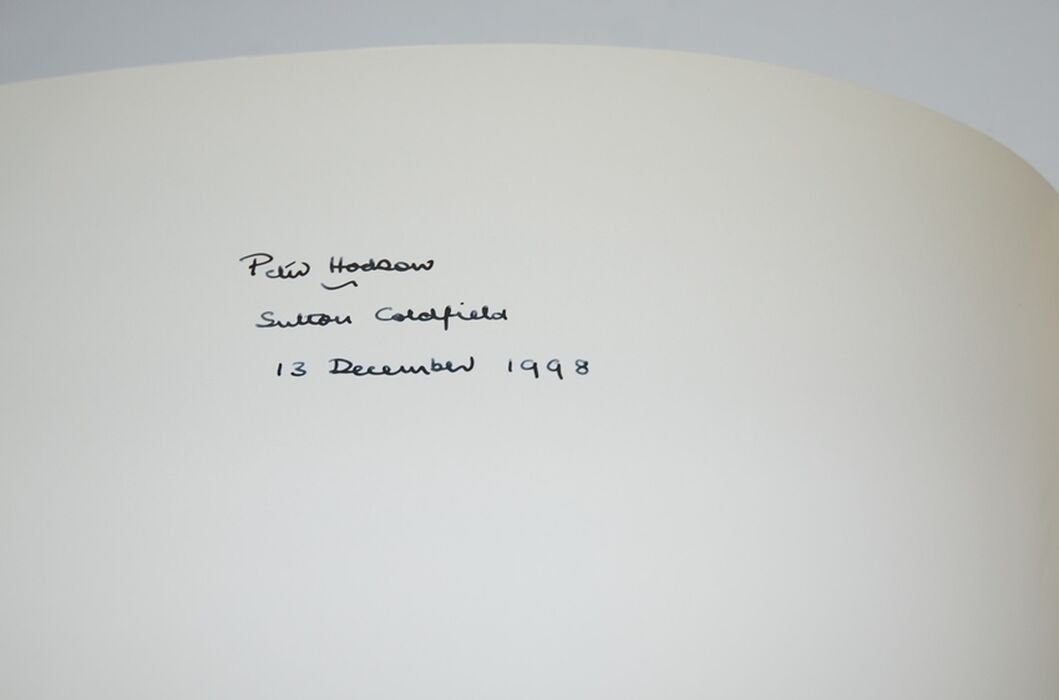 Peter Hodson
Sutton Coldfield
13 December 1998